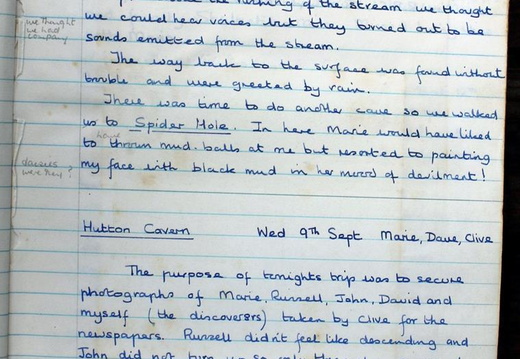 the rushing of the stream we thought
we could hear voices but they turned out to be
sounds emitted from the stream.
The way back to the surface was found without
trouble and were greeted by rain.
There was time to do another cave so we walked
us to Spider Hole. In here Marie would have liked
to have thrown mud balls at me but resorted to painting
my face with black mud in her mood of devilment!
we thought
we had
company
were they?
Hutton Cavern Wed 9th Sept Marie, Dave, Clive
The purpose of tonights trip was to secure
photographs of Marie, Russell, John, David and
myself (the discoverers) taken by Clive for the
newspapers. Russell didn't feel like descending and
John did not turn up so only